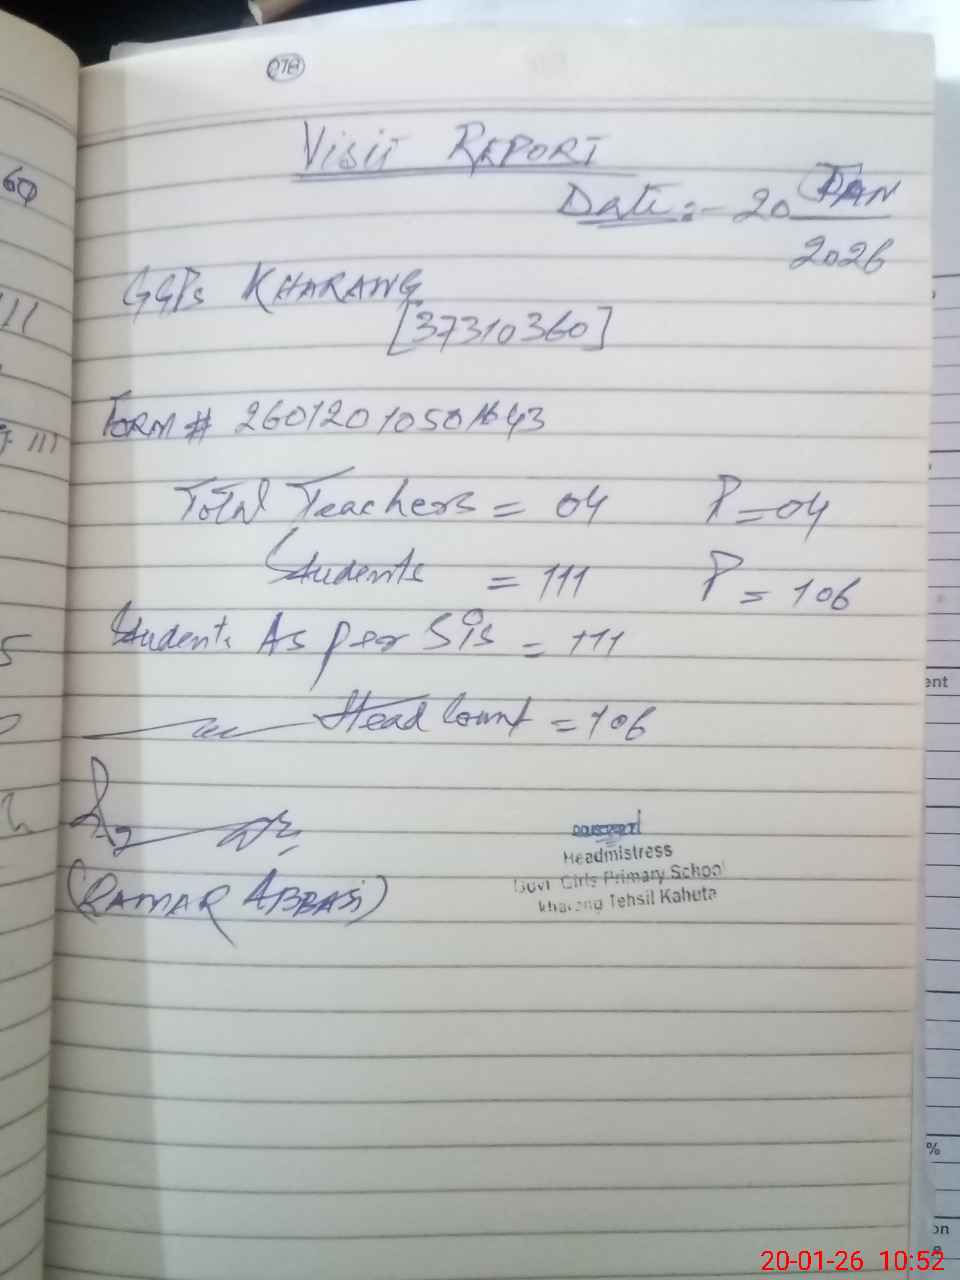 078
Visit REPORT
Date:- 20 JAN
2026
GGPS KHARANG
[37310360]
FORM # 2601201050
Total Teachers = 04 P = 04
Students = 111 P = 106
Students As per Sis = 111
Head Count = 106
(QAMAR ABBASI)
Headmistress
Govt Girls Primary School
kharang Tehsil Kahuta
60
111
111
ent
%
on
20-01-26 10:52